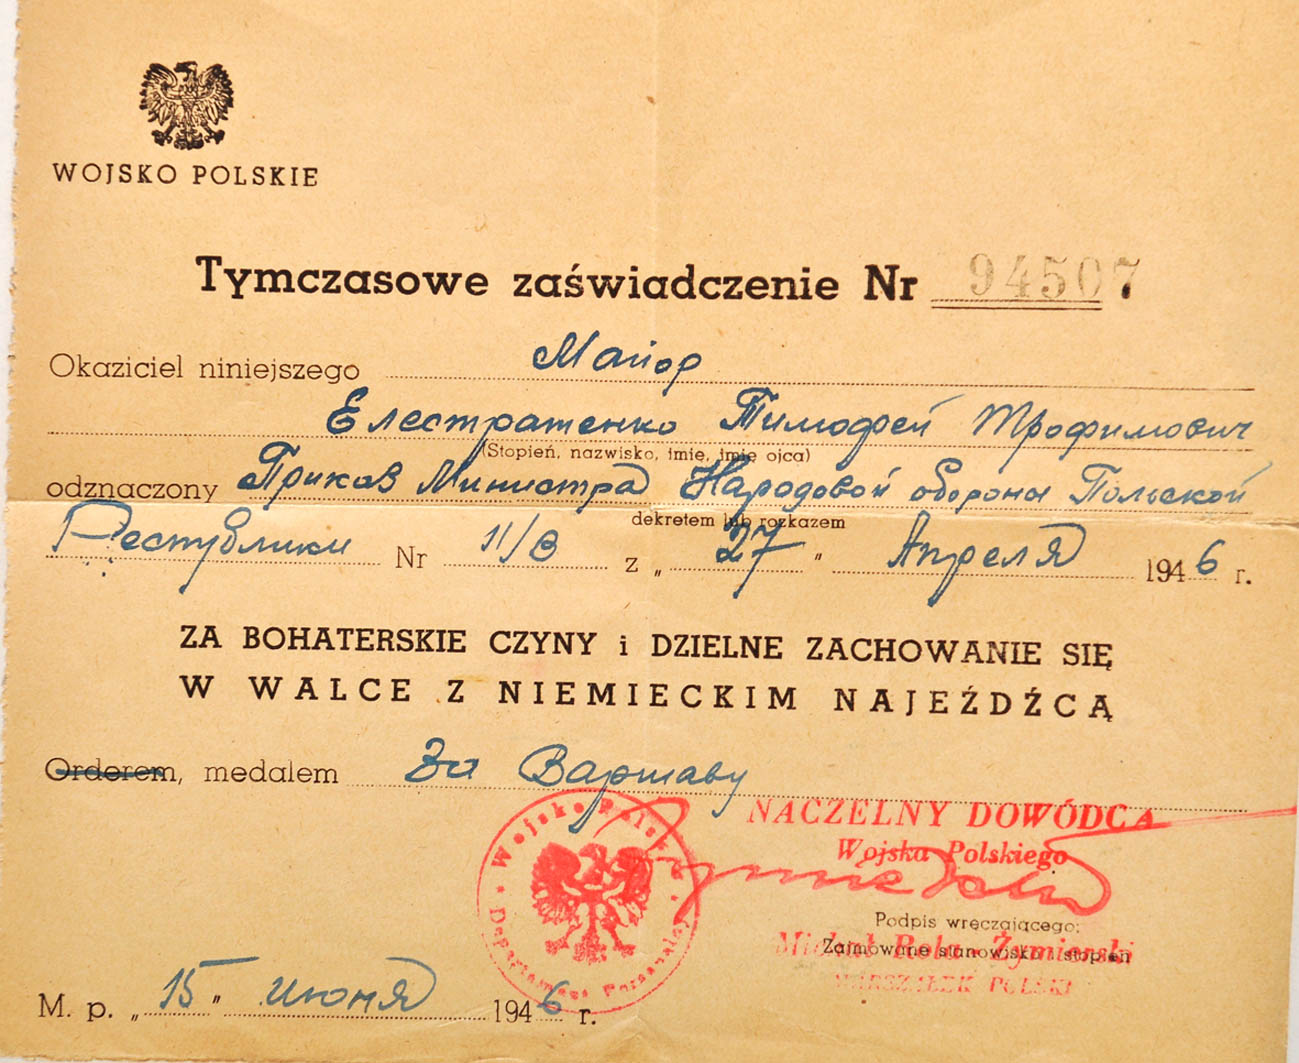 WOJSKO POLSKIE
Tymczasowe zaświadczenie Nr 94507
Okaziciel niniejszego Майор
Елестратенко Тимофей Трофимович
(Stopień, nazwisko, imię, imię ojca)
odznaczony Приказ Министра Народовой обороны Польской
dekretem lub rozkazem
Республики Nr 11/В z „27" Апреля 1946 r.
ZA BOHATERSKIE CZYNY i DZIELNE ZACHOWANIE SIĘ
W WALCE Z NIEMIECKIM NAJEŹDŹCĄ
Orderem, medalem За Варшаву
Wojsko Polskie
Departament Personalny
NACZELNY DOWÓDCA
Wojska Polskiego
Podpis wręczającego:
Zajmowane stanowisko i stopień
Michał Rola-Żymierski
MARSZAŁEK POLSKI
M. p. „15" июня 1946 r.